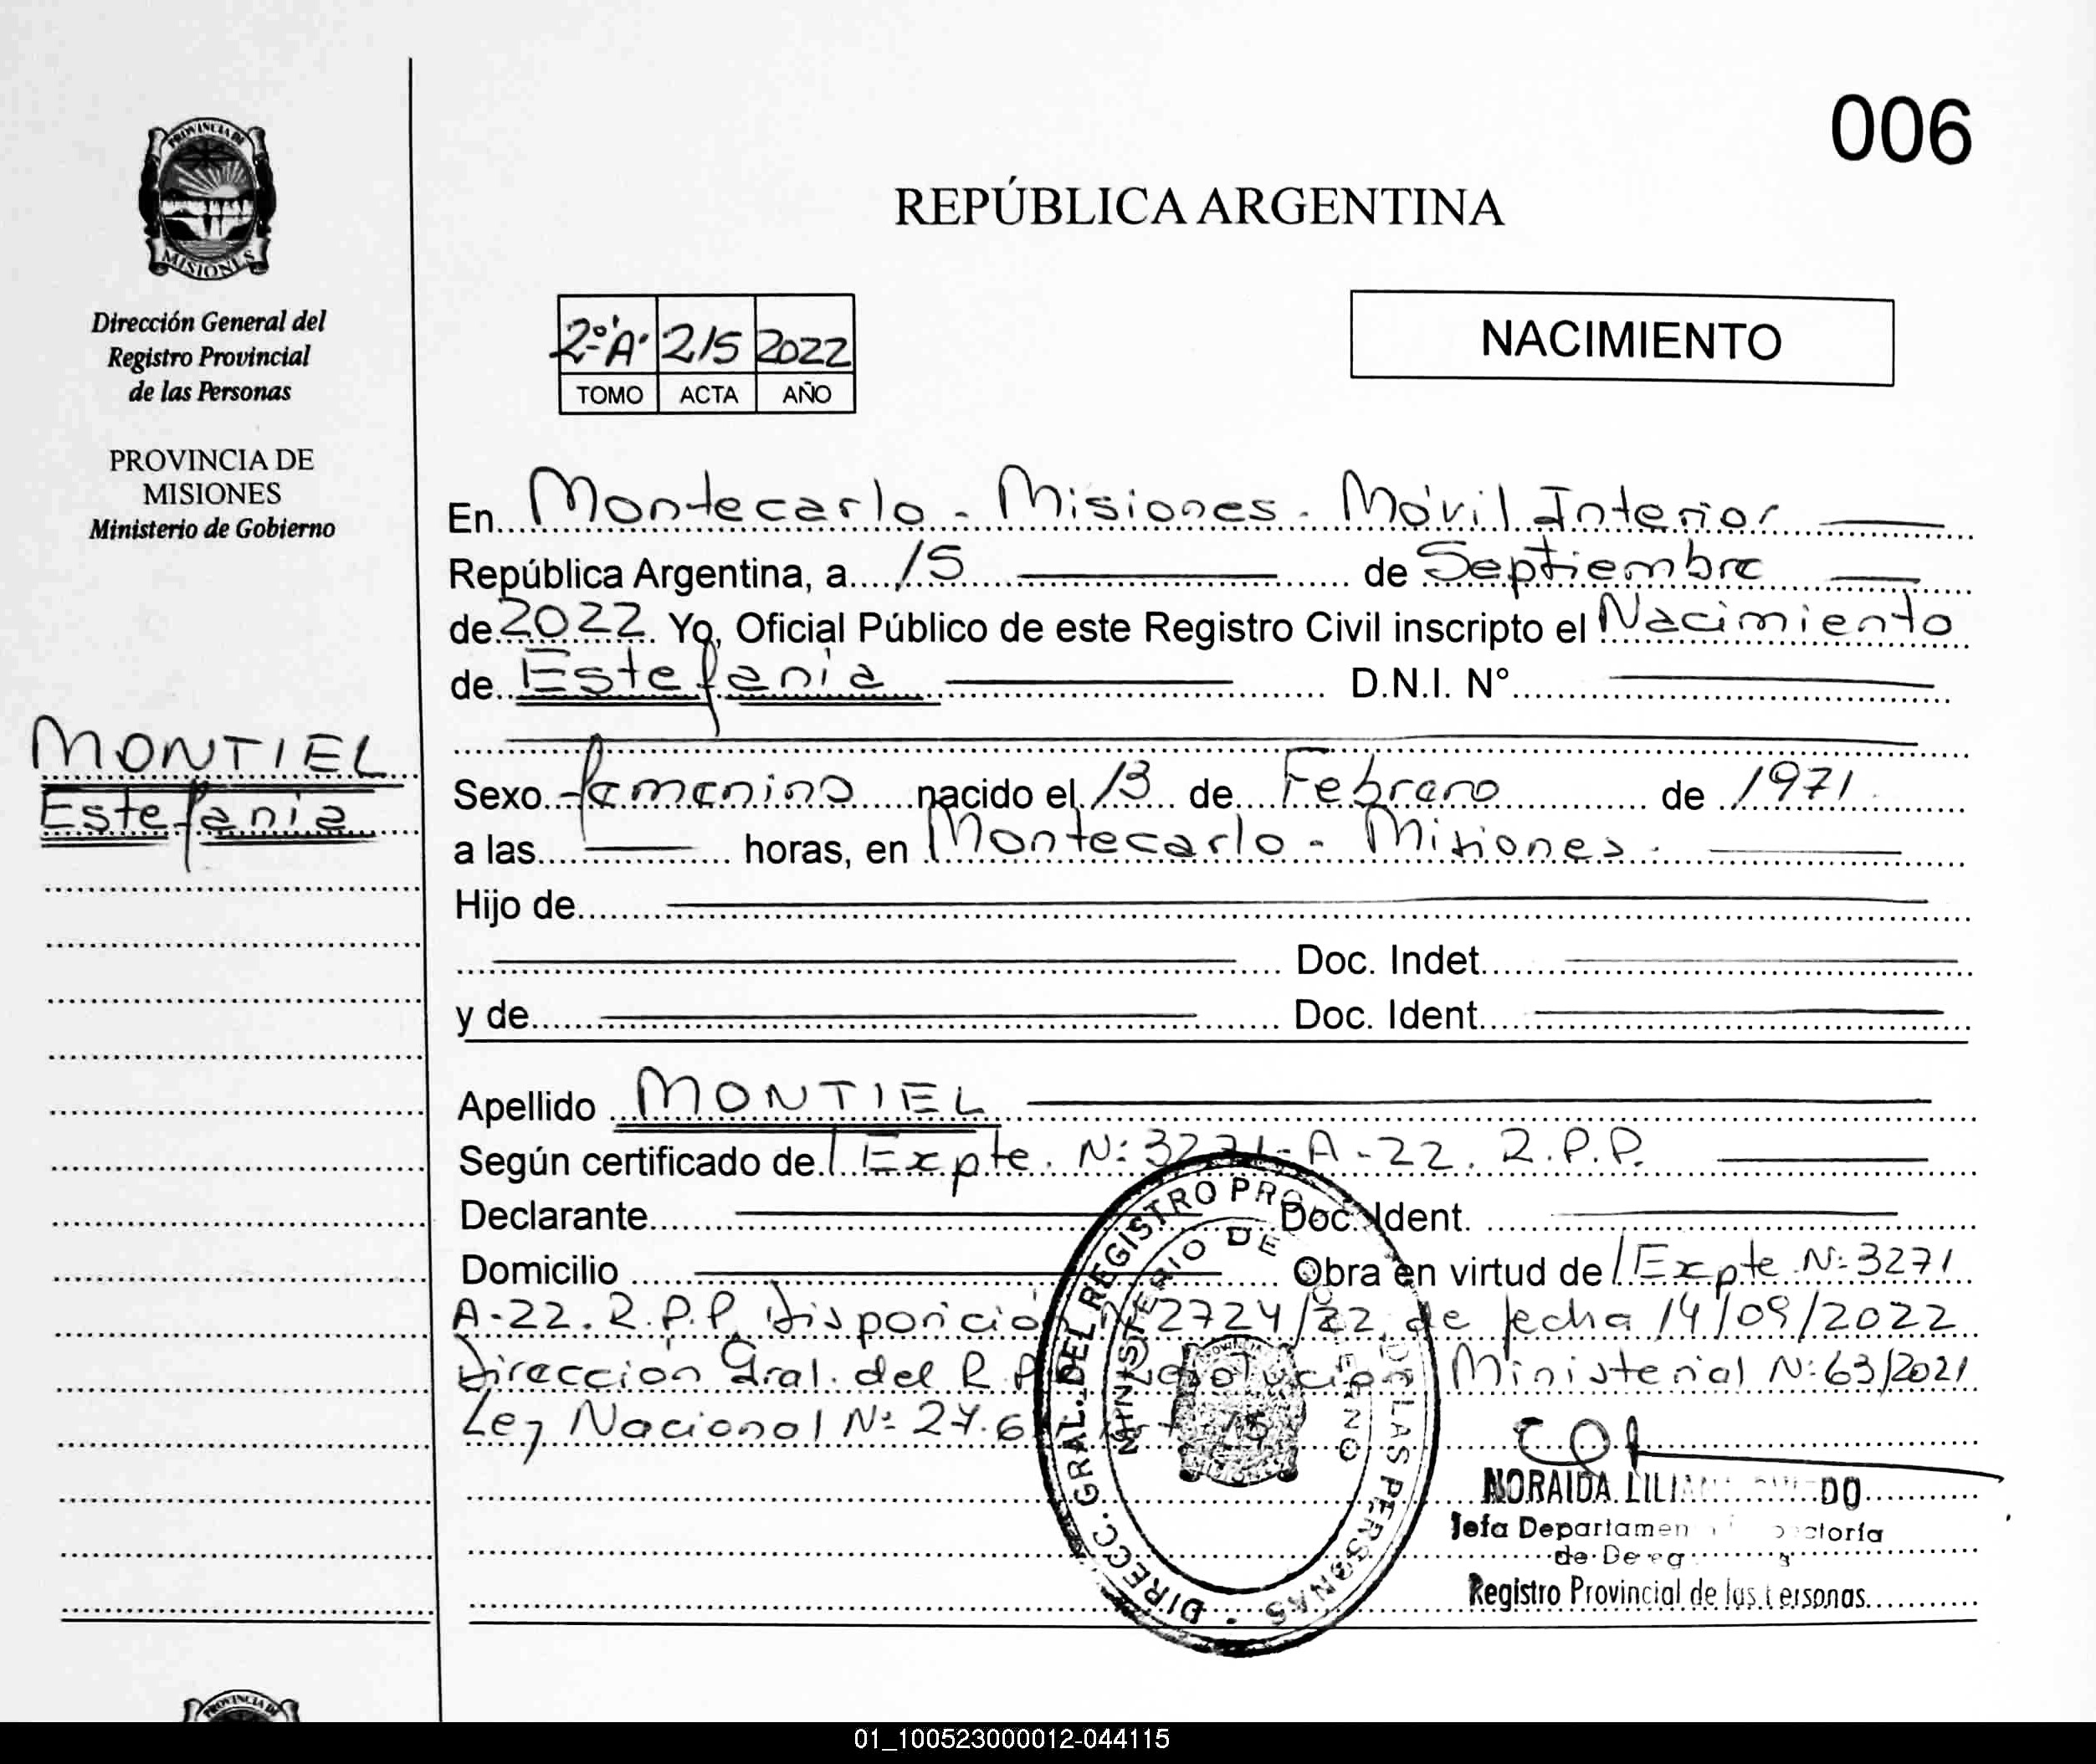 006
PROVINCIA DE
MISIONES
REPÚBLICA ARGENTINA
Dirección General del
Registro Provincial
de las Personas
PROVINCIA DE
MISIONES
Ministerio de Gobierno
2º"A" 215 2022
TOMO ACTA AÑO
NACIMIENTO
MONTIEL
Estefanía
En Montecarlo - Misiones - Móvil Interior
República Argentina, a 15 de Septiembre
de 2022. Yo, Oficial Público de este Registro Civil inscripto el Nacimiento
de Estefanía D.N.I. N°
Sexo femenino nacido el 13 de Febrero de 1971
a las horas, en Montecarlo - Misiones.
Hijo de
Doc. Indet.
y de Doc. Ident.
Apellido MONTIEL
Según certificado de Expte. Nº 3271-A-22. R.P.P.
Declarante Doc. Ident.
Domicilio Obra en virtud de Expte Nº 3271
A-22. R.P.P. Disposición 2724/22 de fecha 14/09/2022
Dirección Gral. del R.P. Resolución Ministerial Nº 63/2021
Ley Nacional Nº 27.6
DIRECC. GRAL. DEL REGISTRO DE LAS PERSONAS
MINISTERIO DE GOBIERNO
NORAIDA
Jefa
Registro Provincial de las Personas
PROVINCIA DE
01_100523000012-044115